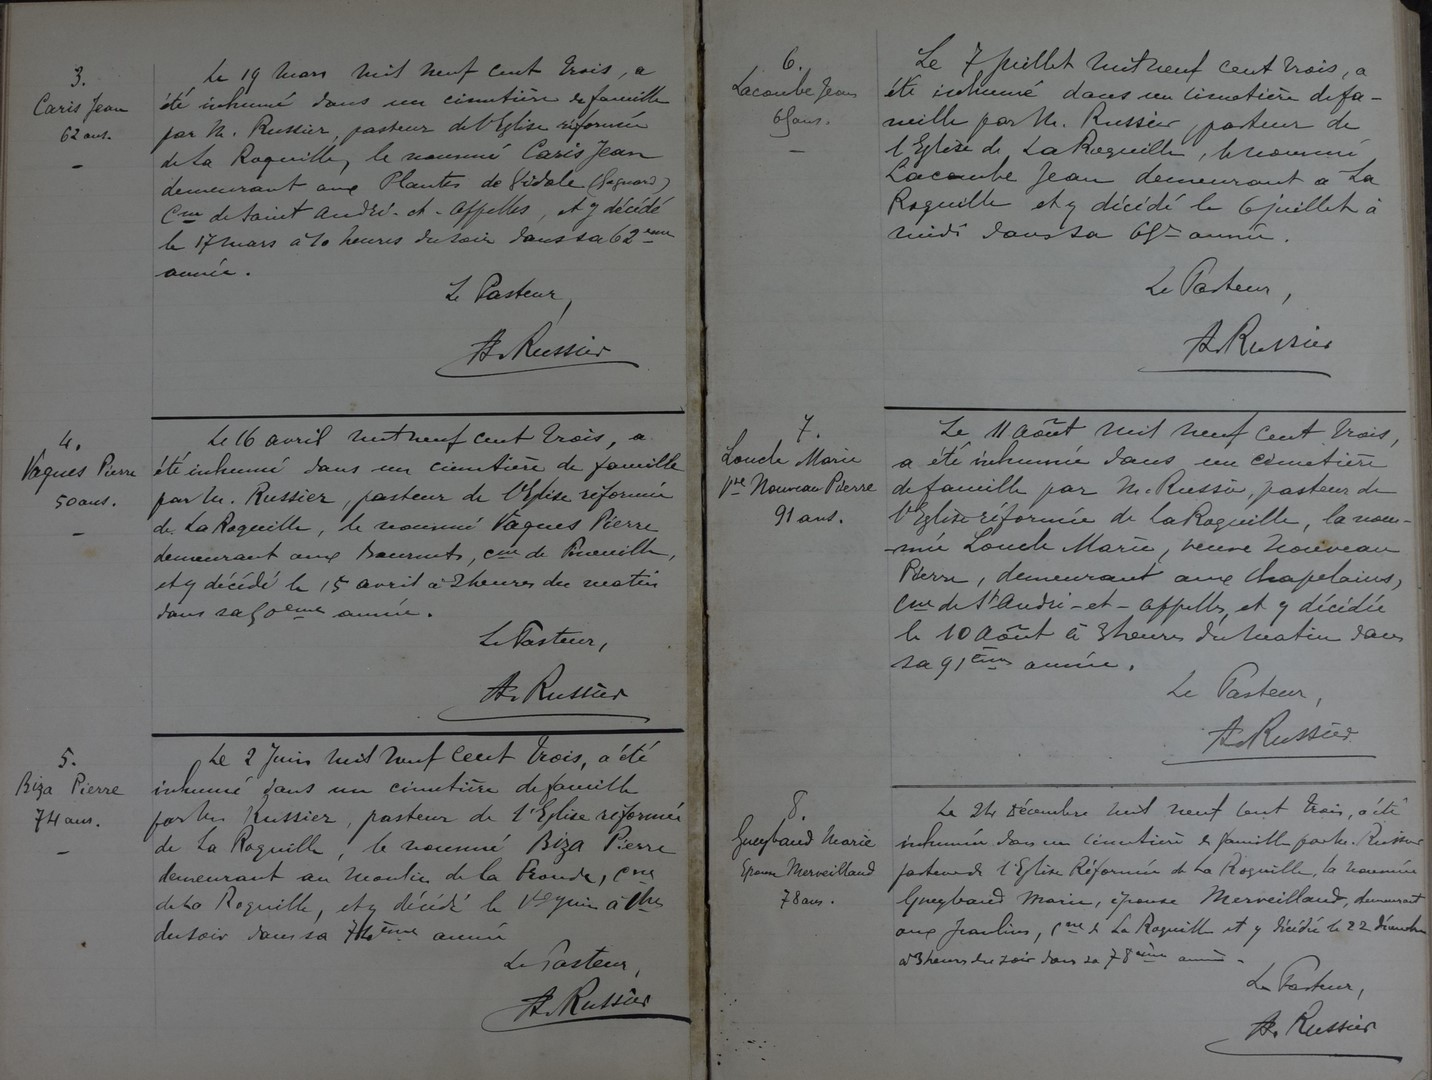 3.
Caris Jean
62 ans.
Le 19 mars mil neuf cent trois, a
été inhumé dans un cimetière de famille
par M. Russier, pasteur de l'Eglise réformée
de La Roquille, le nommé Caris Jean
demeurant aux Plantes de
Cne de Saint André-et-Appelles, et y décédé
le 17 mars à 10 heures du soir dans sa 62eme
année.
Le Pasteur,
A. Russier
4.
Vaques Pierre
50 ans.
Le 16 avril mil neuf cent trois, a
été inhumé dans un cimetière de famille
par M. Russier, pasteur de l'Eglise réformée
de La Roquille, le nommé Vaques Pierre
demeurant aux cne de Pineuilh,
et y décédé le 15 avril à 2 heures du matin
dans sa 50eme année.
Le Pasteur,
A. Russier
5.
Biza Pierre
74 ans.
Le 2 Juin mil neuf cent trois, a été
inhumé dans un cimetière de famille
par M. Russier, pasteur de l'Eglise réformée
de La Roquille, le nommé Biza Pierre
demeurant au Moulin de la cne
de La Roquille, et y décédé le 1er juin à
du soir dans sa 74ème année
Le Pasteur,
A. Russier
6.
Lacombe Jean
ans.
Le 7 Juillet mil neuf cent trois, a
été inhumé dans un cimetière de fa-
mille par M. Russier, pasteur de
l'Eglise de La Roquille, le nommé
Lacombe Jean demeurant à La
Roquille et y décédé le 6 juillet à
midi dans sa année.
Le Pasteur,
A. Russier
7.
Louch Marie
Vve Nouveau Pierre
91 ans.
Le 11 Août mil neuf cent trois,
a été inhumée dans un cimetière
de famille par M. Russier, pasteur de
l'Eglise réformée de la Roquille, la nom-
mée Louch Marie, veuve Nouveau
Pierre, demeurant aux Chapelains,
Cne de St André-et-Appelles, et y décédée
le 10 Août à 3 heures du matin dans
sa 91ème année.
Le Pasteur,
A. Russier
8.
Gueybaud Marie
Epouse Merveillaud
78 ans.
Le 24 Décembre mil neuf cent trois, a été
inhumée dans un cimetière de famille par M. Russier
pasteur de l'Eglise Réformée de La Roquille, la nommée
Gueybaud Marie, épouse Merveillaud, demeurant
aux Jaulins, Cne de La Roquille et y décédée le 22 décembre
à 3 heures du soir dans sa 78ème année.
Le Pasteur,
A. Russier